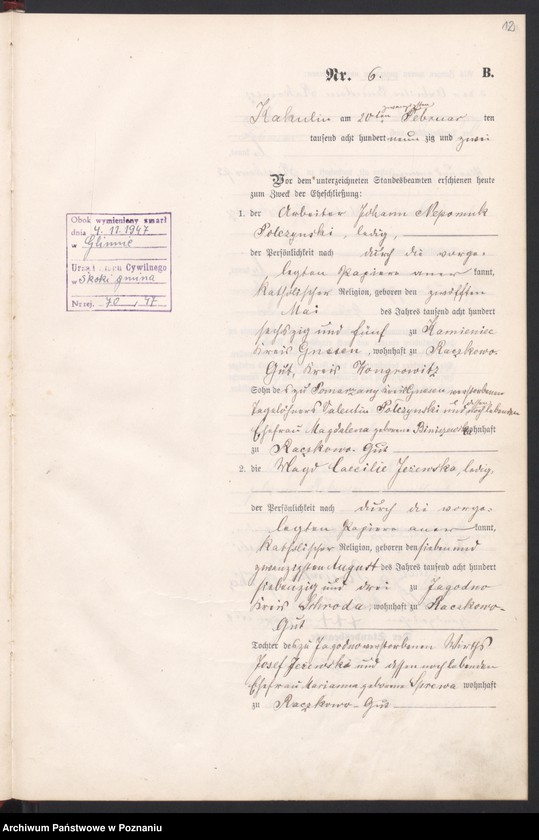 12
Nr. 6. B.
Kakulin am 20ten zwanzigsten Februar ten
tausend acht hundert neun zig und zwei
Vor dem unterzeichneten Standesbeamten erschienen heute
zum Zweck der Eheschließung:
1. der Arbeiter Johann Nepomuk
Polczynski, ledig,
der Persönlichkeit nach durch die vorge-
legten Papiere aner kannt,
katholischer Religion, geboren den zwölften
Mai des Jahres tausend acht hundert
sechszig und fünf zu Kamieniec
Kreis Gnesen, wohnhaft zu Raczkowo-
Gut, Kreis Wongrowitz
Sohn des zu Kreis Gnesen verstorbenen
Tagelöhners Valentin Polczynski und dessen noch lebenden
Ehefrau Magdalena geborene wohnhaft
zu Raczkowo-Gut
2. die Magd Caecilie Jezewska, ledig,
der Persönlichkeit nach durch die vorge-
legten Papiere aner kannt,
katholischer Religion, geboren den sieben und
zwanzigsten August des Jahres tausend acht hundert
siebenzig und drei zu Jagodno
Kreis Schroda, wohnhaft zu Raczkowo-
Gut
Tochter des zu Jagodno verstorbenen Wirths
Josef Jezewski und dessen noch lebenden
Ehefrau Marianna geborene wohnhaft
zu Raczkowo-Gut
Obok wymieniony zmarł
dnia 4.11.1947
w Glinne
Urząd Stanu Cywilnego
w Skoki gmina
Nr rej. 70 / 47
Archiwum Państwowe w Poznaniu